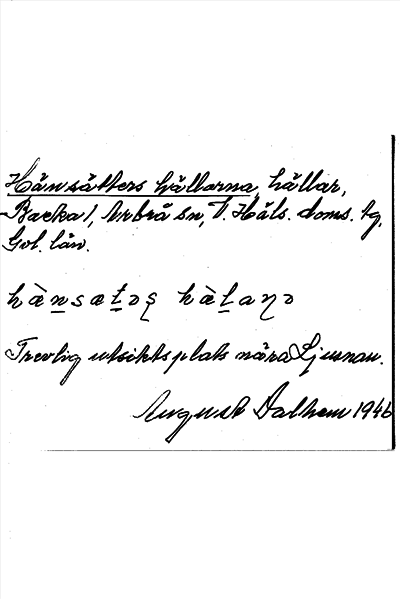 Hånsätters hällarna, hällar,
Backa 1, Arbrå sn, V. Häls. doms. tg,
Gvl. län.
hȧ̀n̲sæt̲əș hȧ̀l̲aɳə
Trevlig utsiktsplats nära Ljusnan.
August Dalhem 1946